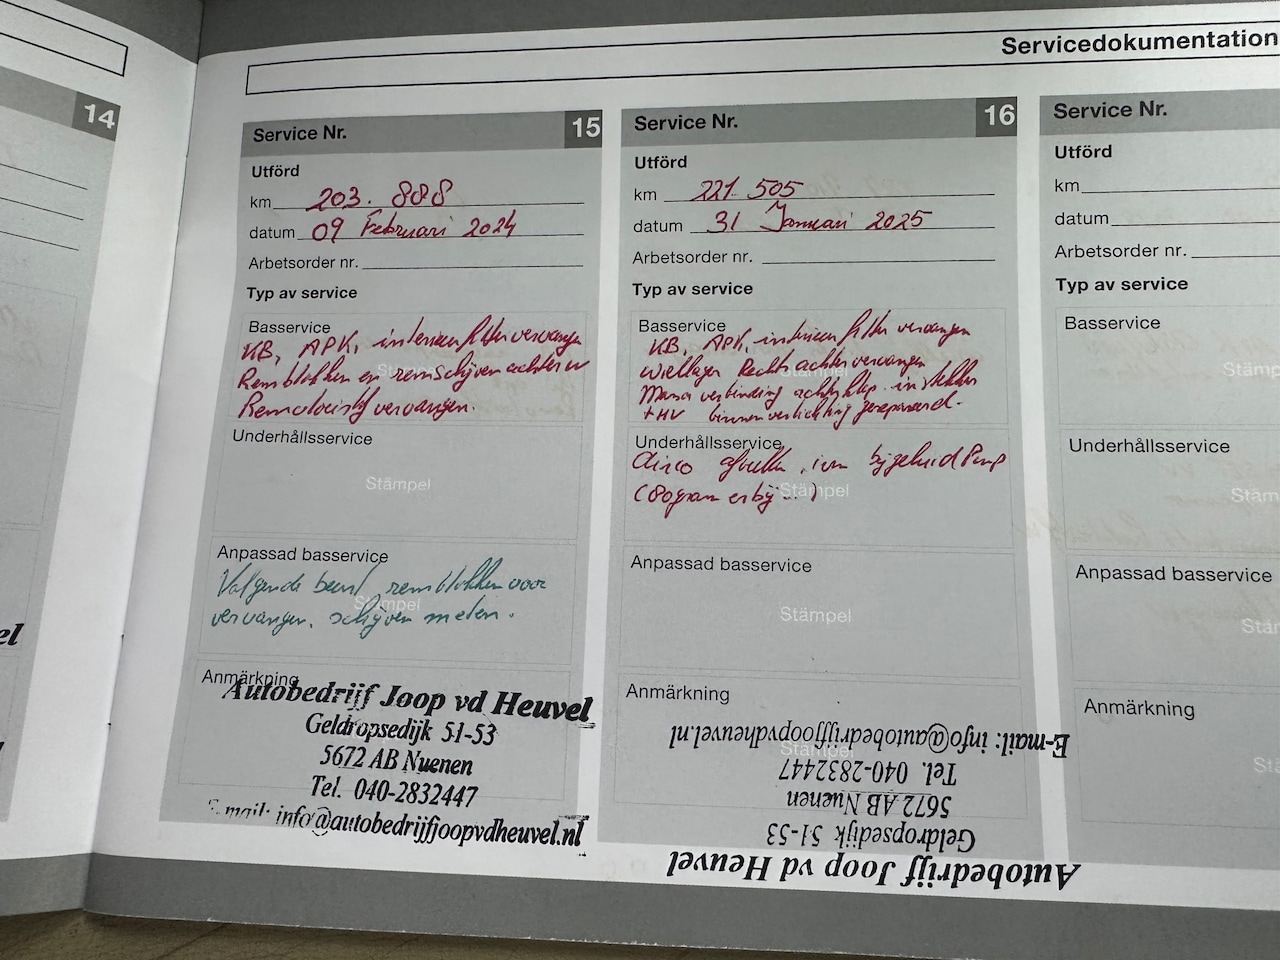 Servicedokumentation
14
Service Nr. 15
Utförd
km 203.888
datum 09 Februari 2024
Arbetsorder nr.
Typ av service
Basservice
KB, APK, interieurfilter vervangen
Remblokken en remschijven achter
Remvloeistof vervangen.
Stämpel
Underhållsservice
Stämpel
Anpassad basservice
Volgende beurt remblokken voor
vervangen, schijven meten.
Stämpel
Anmärkning
Autobedrijf Joop vd Heuvel
Geldropsedijk 51-53
5672 AB Nuenen
Tel. 040-2832447
E-mail: info@autobedrijfjoopvdheuvel.nl
Service Nr. 16
Utförd
km 221.505
datum 31 Januari 2025
Arbetsorder nr.
Typ av service
Basservice
KB, APK, interieurfilter vervangen
Wiellager Rechts achter vervangen
Massa verbinding achterklep
+ HV binnenverlichting gerepareerd.
Stämpel
Underhållsservice
Airco bijgeluid Pomp
(80gram erbij...)
Stämpel
Anpassad basservice
Stämpel
Anmärkning
Stämpel
Autobedrijf Joop vd Heuvel
Geldropsedijk 51-53
5672 AB Nuenen
Tel. 040-2832447
E-mail: info@autobedrijfjoopvdheuvel.nl
Service Nr.
Utförd
km
datum
Arbetsorder nr.
Typ av service
Basservice
Stämp
Underhållsservice
Stäm
Anpassad basservice
Stär
Anmärkning
Stä